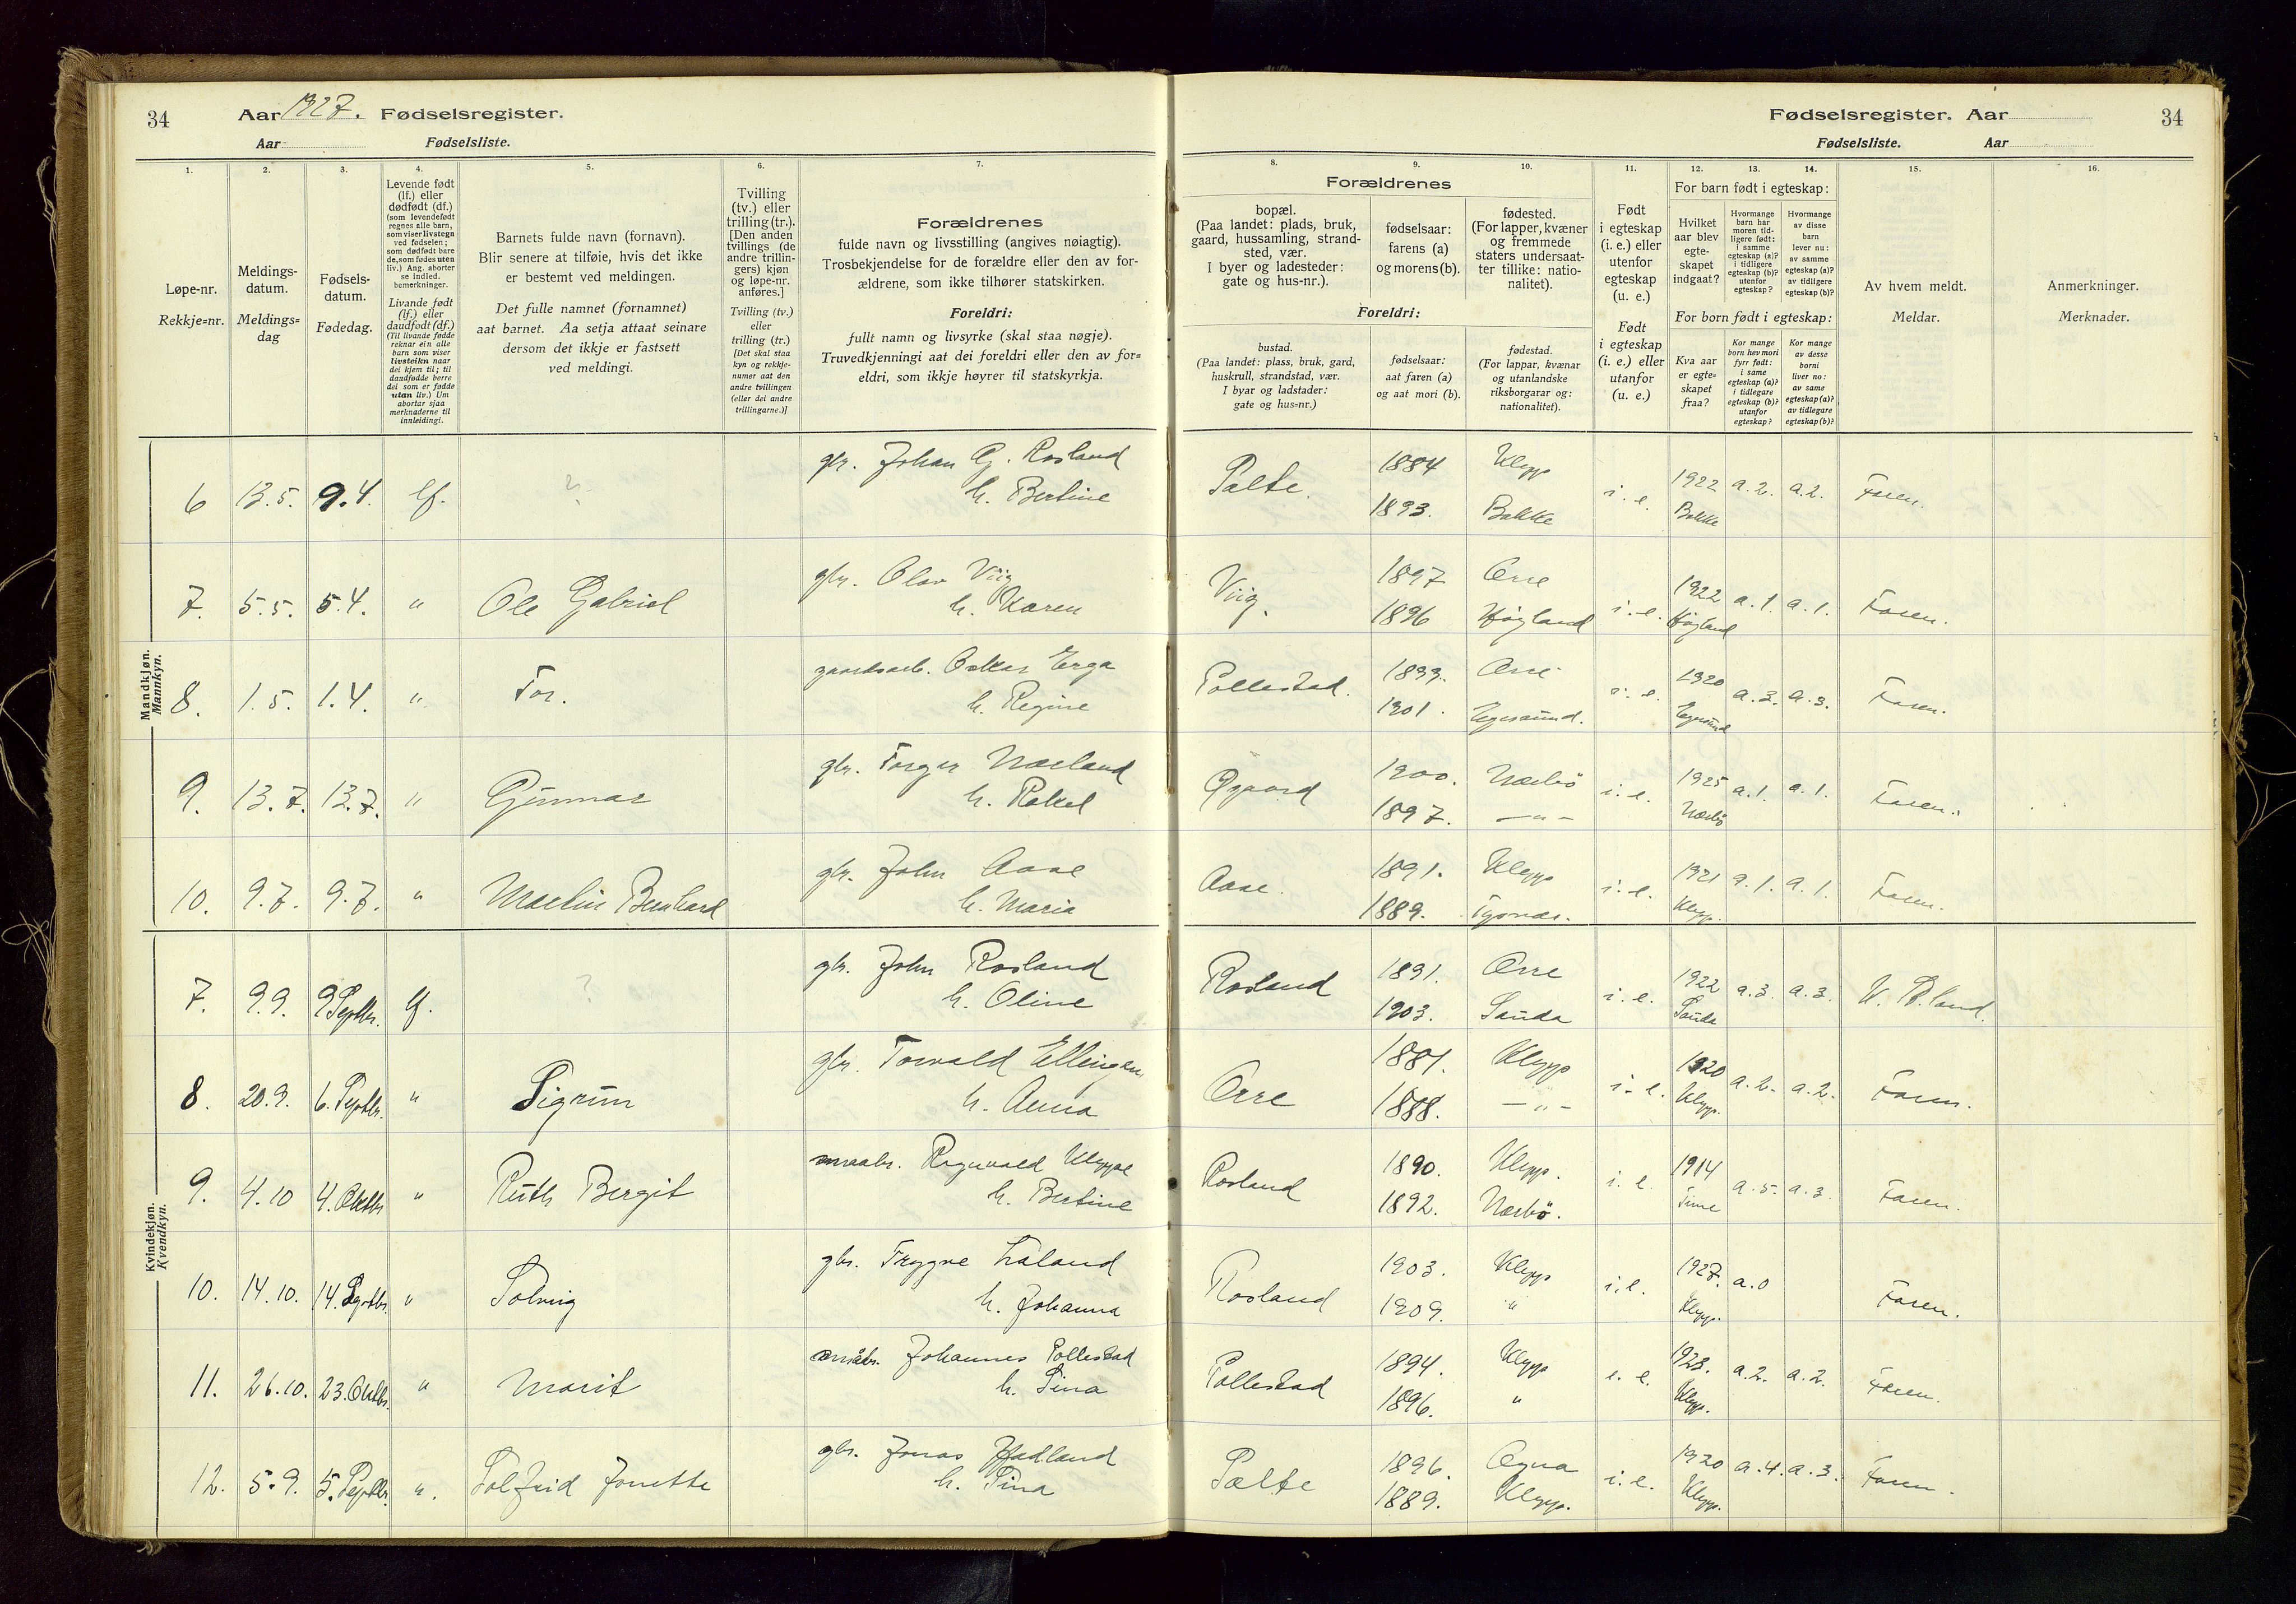 34
Aar 1927. Fødselsregister.
Aar Fødselsliste.
Fødselsregister. Aar
34
Fødselsliste. Aar
1.
Løpe-nr.
Rekkje=nr.
2.
Meldings-
datum.
Meldings=
dag
3.
Fødsels-
datum.
Fødedag.
4.
Levende født
(lf.) eller
dødfødt (df.)
(som levendefødt
regnes alle barn,
som viser livstegn
ved fødselen;
som dødfødt bare
de, som fødes uten
liv.) Ang. aborter
se indled.
bemerkninger.
Livande født
(lf.) eller
daudfødt (df.)
(Til livande fødde
reknar ein alle
barn som viser
livsteikn naar
dei kjem til; til
daudfødde berre
dei som er fødde
utan liv.) Um
abortar sjaa
merknaderne til
innleidingi.
5.
Barnets fulde navn (fornavn).
Blir senere at tilføie, hvis det ikke
er bestemt ved meldingen.
Det fulle namnet (fornamnet)
aat barnet. Aa setja attaat seinare
dersom det ikkje er fastsett
ved meldingi.
6.
Tvilling
(tv.) eller
trilling (tr.).
[Den anden
tvillings (de
andre trillin-
gers) kjøn
og løpe-nr.
anføres.]
Tvilling (tv.)
eller
trilling (tr.)
[Det skal staa
kyn og rekkje-
numer aat den
andre tvillingen
(eller dei andre
trillingarne.)]
7.
Forældrenes
fulde navn og livsstilling (angives nøiagtig).
Trosbekjendelse for de forældre eller den av for-
ældrene, som ikke tilhører statskirken.
Foreldri:
fullt namn og livsyrke (skal staa nøgje).
Truvedkjenningi aat dei foreldri eller den av for=
eldri, som ikkje høyrer til statskyrkja.
8.
Forældrenes
bopæl.
(Paa landet: plads, bruk,
gaard, hussamling, strand-
sted, vær.
I byer og ladesteder:
gate og hus-nr.).
Foreldri:
bustad.
(Paa landet: plass, bruk, gard,
huskrull, strandstad, vær.
I byar og ladstader:
gate og hus-nr.)
9.
fødselsaar:
farens (a)
og morens (b).
fødselsaar:
aat faren (a)
og aat mori (b).
10.
fødested.
(For lapper, kvæner
og fremmede
staters undersaat-
ter tillike: natio-
nalitet).
fødestad.
(For lappar, kvænar
og utanlandske
riksborgarar og:
nationalitet).
11.
Født
i egteskap
(i. e.) eller
utenfor
egteskap
(u. e.)
Født
i egteskap
(i. e.) eller
utanfor
(u. e.)
For barn født i egteskap:
12.
Hvilket
aar blev
egte-
skapet
indgaat?
For born født i egteskap:
Kva aar
er egte=
skapet
fraa?
13.
Hvormange
barn har
moren tid-
ligere født:
i samme
egteskap (a)?
i tidligere
egteskap (b)?
utenfor
egteskap?
Kor mange
born hev mori
fyrr født:
i same
egteskap (a)?
i tidlegare
egteskap (b)?
utanfor
egteskap?
14.
Hvormange
av disse
barn
lever nu:
av samme
egteskap (a)?
av tidligere
egteskap (b)?
Kor mange
av desse
borni
liver no:
av same
egteskap (a)?
av tidlegare
egteskap (b)?
15.
Av hvem meldt.
Meldar.
16.
Anmerkninger.
Merknader.
Mandkjøn.
Mannkyn.
6 13.5. 9.4. lf. ? gbr. Johan G. Rosland Salte. 1884 Klepp i. e. 1922 a. 2. a. 2. Faren.
h. Bertine 1893. Bakke Bakke
7. 5.5. 5.4. " Ole Gabriel gbr. Olav Viig Viig. 1897 Orre i. e. 1922 a. 1. a. 1. Faren.
h. Karen 1896 Høyland Høyland
8. 1.5. 1.4. " Tor. gaardsarb. Oskar Erga Pollestad. 1899. Orre i. e. 1920 a. 3. a. 3. Faren.
h. Regine 1901. Egersund. Egersund
9. 13.7. 13.7. " Gunnar gbr. Torger Nærland Øgaard 1900. Nærbø i. e. 1925 a. 1. a. 1. Faren.
h. Rakel 1897. — " — Nærbø
10. 9.7. 9.7. " Martin Bernhard gbr. John Aase Aase. 1891. Klepp i. e. 1921 a. 1. a. 1. Faren.
h. Maria 1889. Tysvær. Klepp.
Kvindekjøn.
Kvendkyn.
7. 9.9. 9 Septbr. lf. ? gbr. John Rosland Rosland 1891. Orre i. e. 1922 a. 3. a. 3.
h. Oline 1903. Sauda Sauda
8. 20.9. 6. Septbr. " Sigrun gbr. Torvald Ellingsen Orre 1881. Klepp i. e. 1920 a. 2. a. 2. Faren.
h. Anna 1888. — " — Klepp.
9. 4.10 4. Oktbr " Ruth Bergit smaabr. Ragnvald Kleppe Rosland 1890. Klepp. i. e. 1914 a. 5. a. 3. Faren.
h. Bertine 1892. Nærbø. Time
10. 14.10. 14. Septbr. " Solveig gbr. Trygve Laland Rosland 1903. Klepp i. e. 1927. a. 0 Faren.
h. Johanna 1909. " Klepp.
11. 26.10. 23. Oktbr. " Marit småbr. Johannes Pollestad Pollestad 1894. Klepp i. e. a. 2. a. 2. Faren.
h. Sina 1896. " Klepp.
12. 5.9. 5. Septbr. ". Solfrid Jonette gbr. Jonas Hadland Salte 1896. Ogna i. e. 1920 a. 4. a. 3. Faren.
h. Sina 1889. Klepp. Klepp.